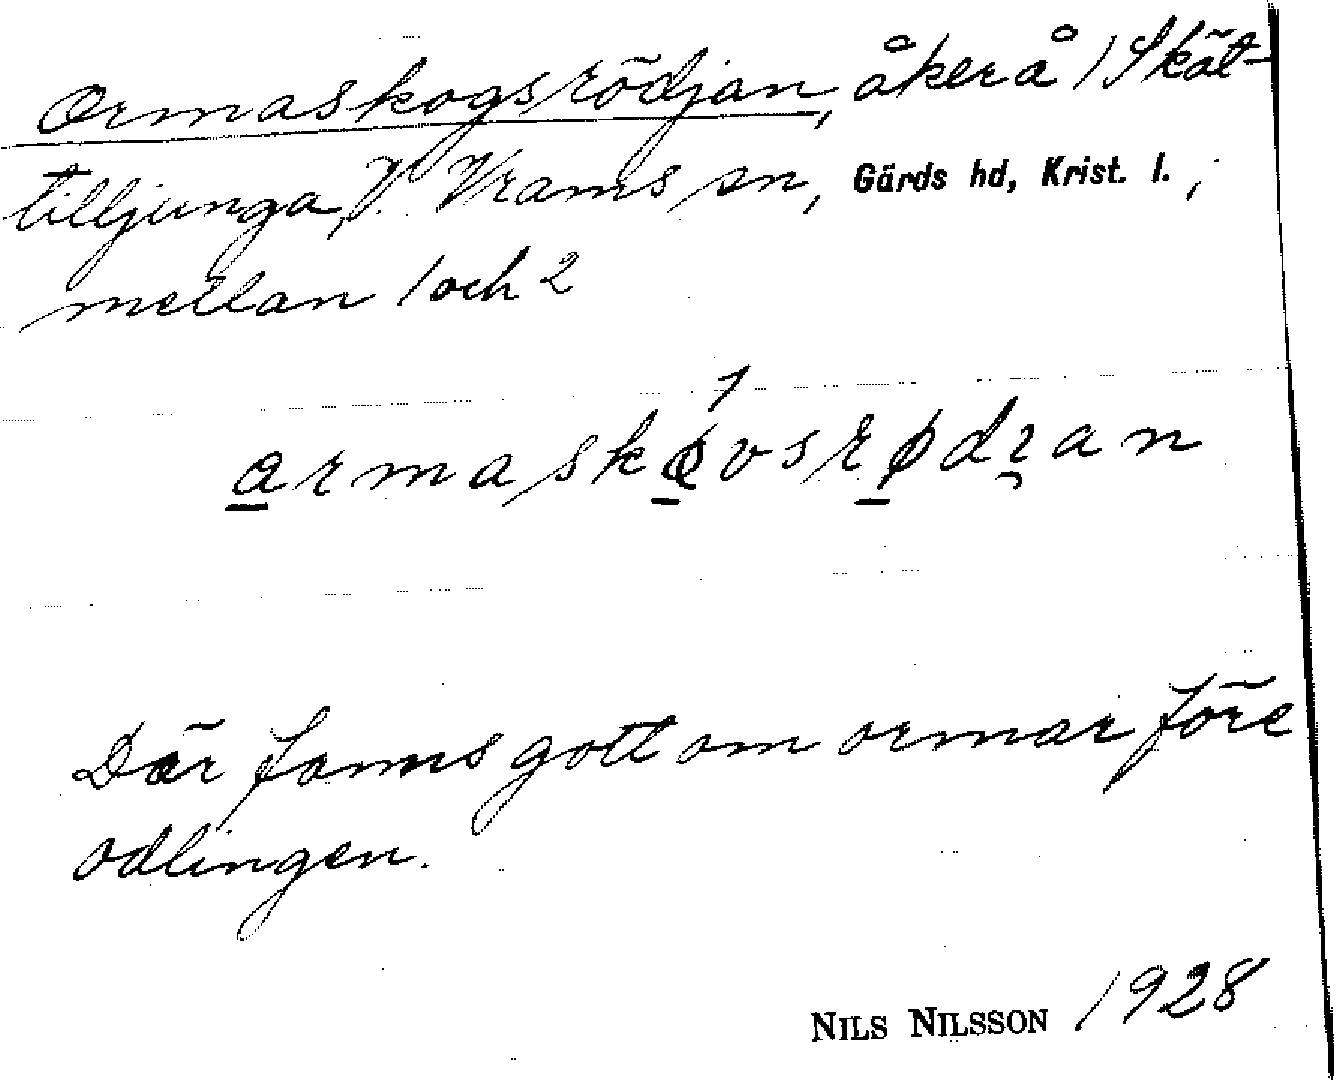 Ormaskogsrödjan, åker å 1 Skät-
tilljunga, V. Vrams sn, Gärds hd, Krist. l.;
mellan 1 och 2
Där fanns gott om ormar före
odlingen.
NILS NILSSON 1928